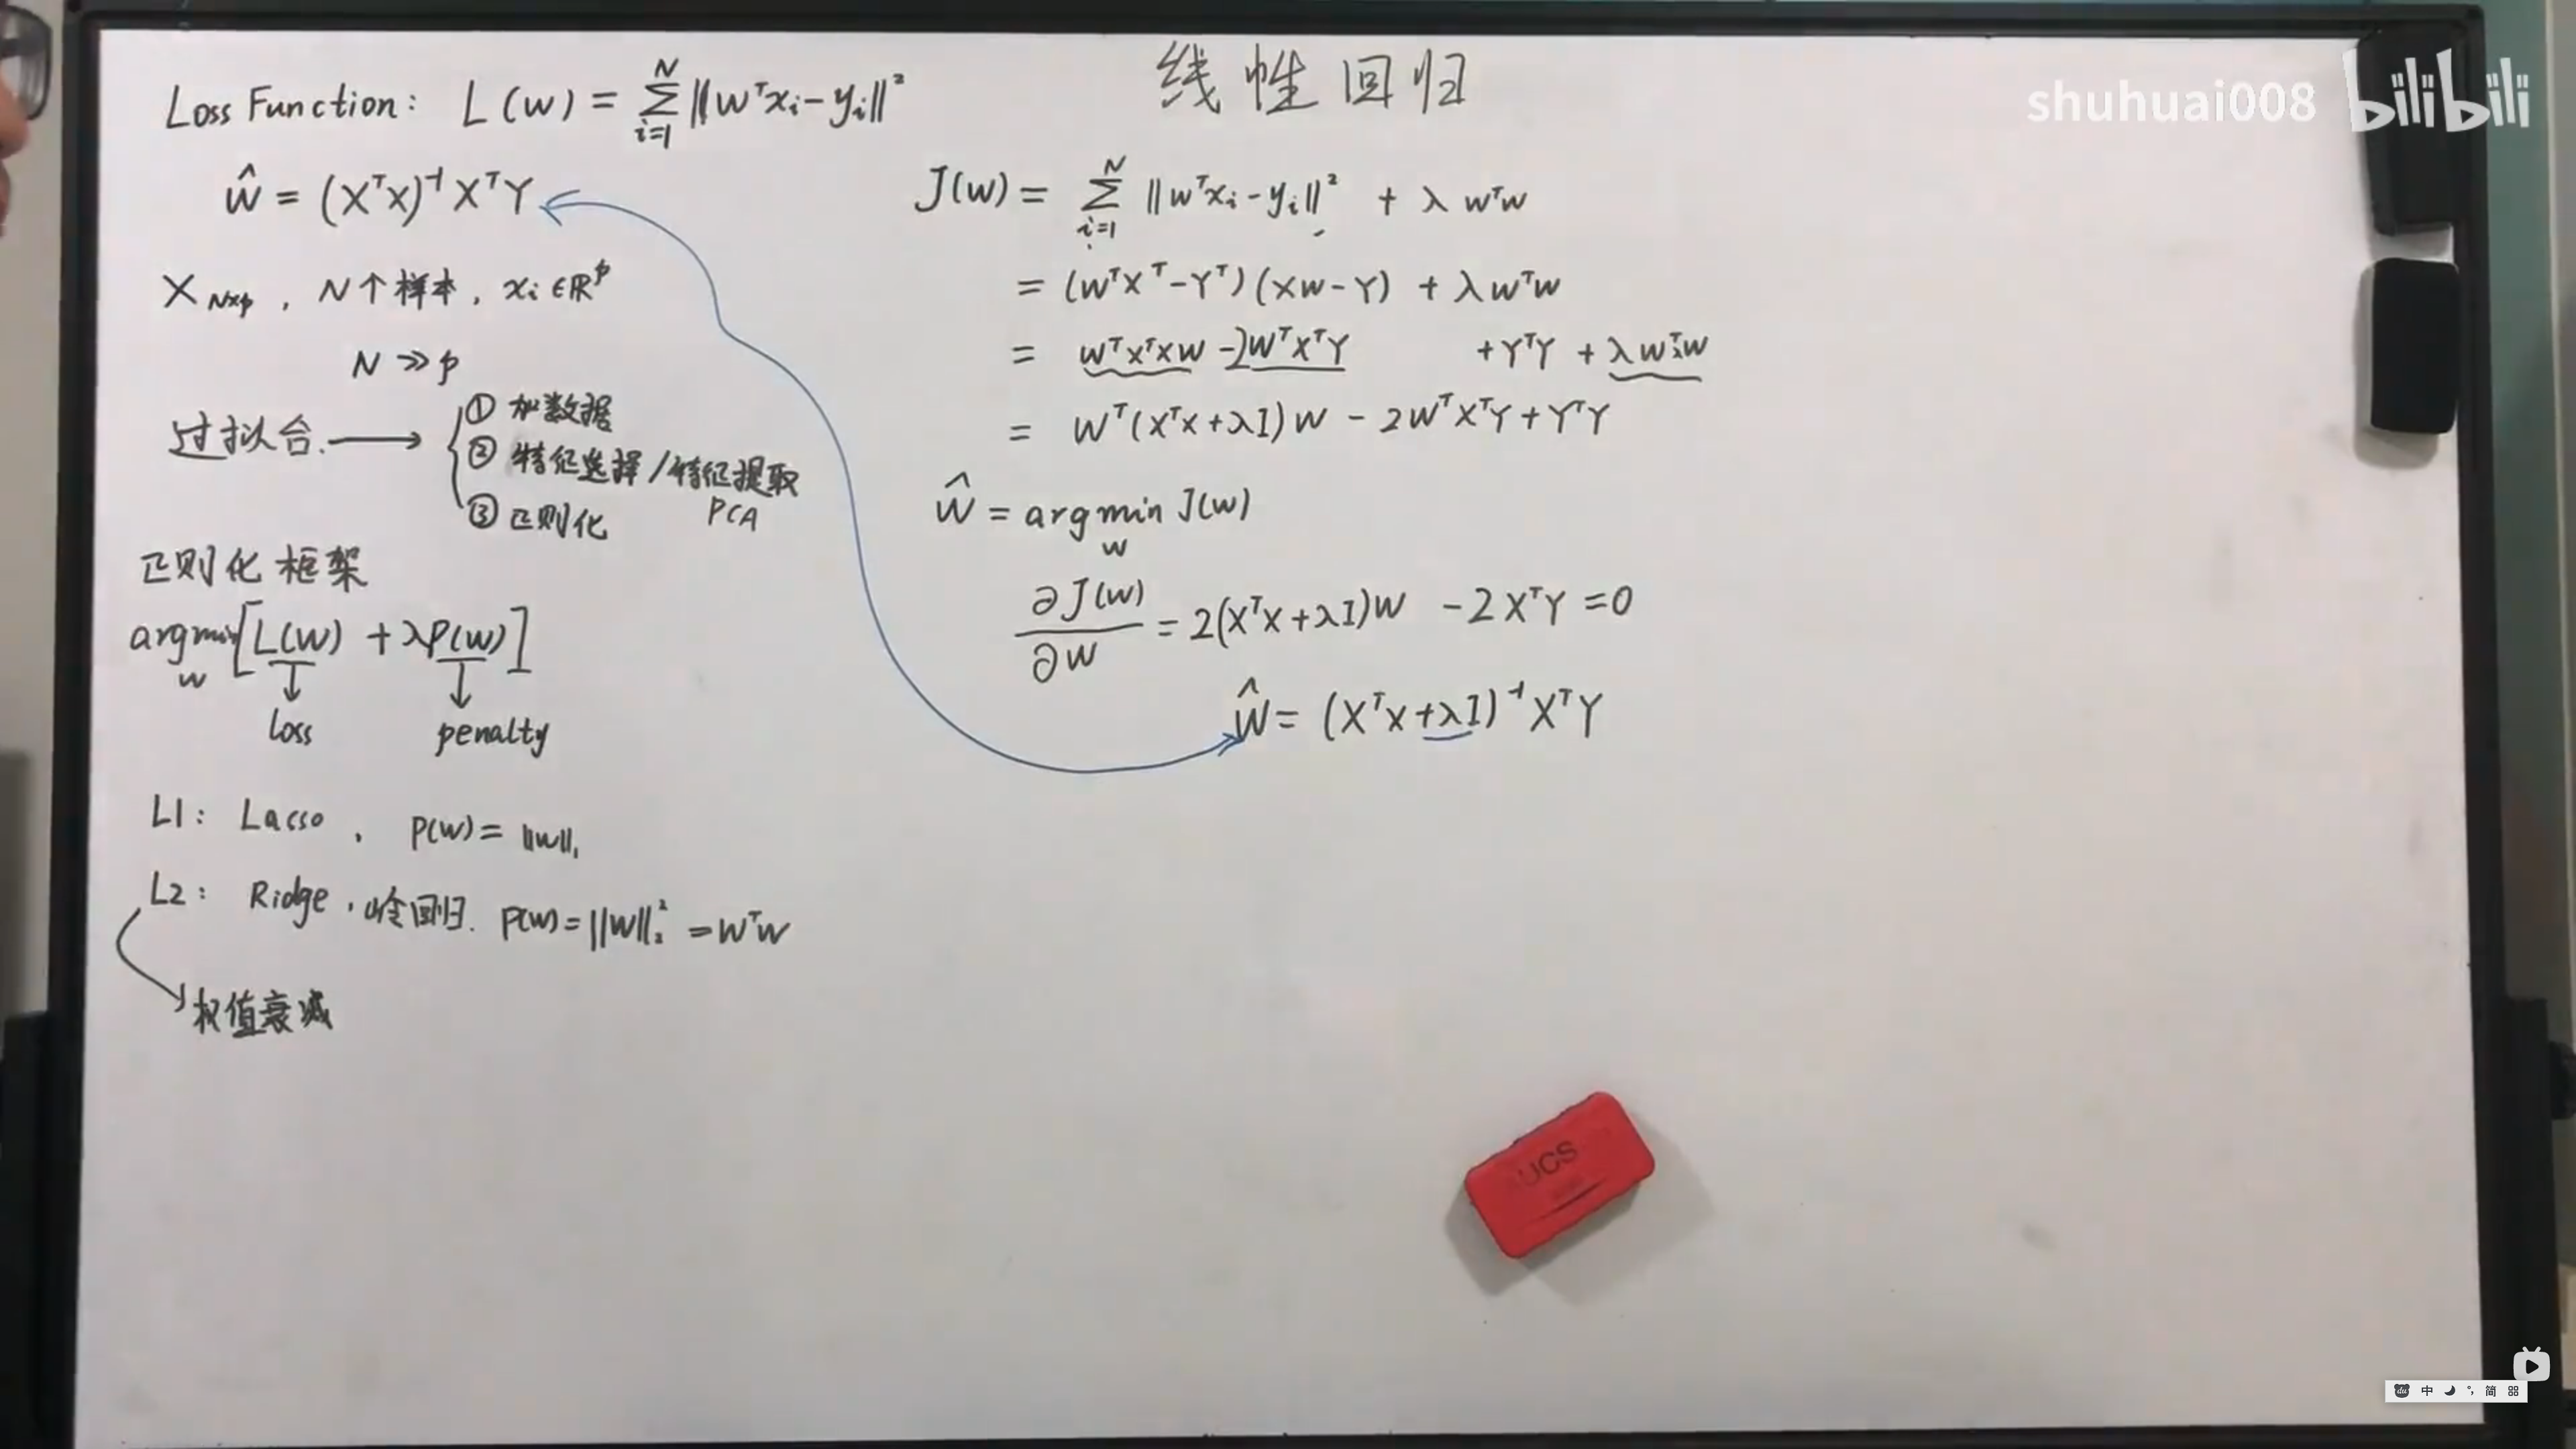 线性回归
shuhuai008 bilibili
Loss Function: L(w) = \sum_{i=1}^{N} ||w^T x_i - y_i||^2
ŵ = (X^T X)^{-1} X^T Y
X_{N×p}, N个样本, x_i ∈ ℝ^p
N ≫ p
过拟合. ⟶
① 加数据
② 特征选择/特征提取
PCA
③ 正则化
正则化框架
argmin_w [L(w) + λP(w)]
↓ ↓
loss penalty
L1: Lasso, P(w) = ||w||_1
L2: Ridge, 岭回归. P(w) = ||W||_2^2 = W^T W
权值衰减
J(w) = \sum_{i=1}^{N} ||w^T x_i - y_i||^2 + λ w^T w
= (w^T X^T - Y^T)(XW - Y) + λ w^T w
= w^T X^T X W - 2W^T X^T Y + Y^T Y + λ W^T W
= W^T (X^T X + λI) W - 2W^T X^T Y + Y^T Y
Ŵ = argmin_w J(w)
∂J(w)/∂W = 2(X^T X + λI)W - 2X^T Y = 0
Ŵ = (X^T X + λI)^{-1} X^T Y
UCS
du 中 °, 简